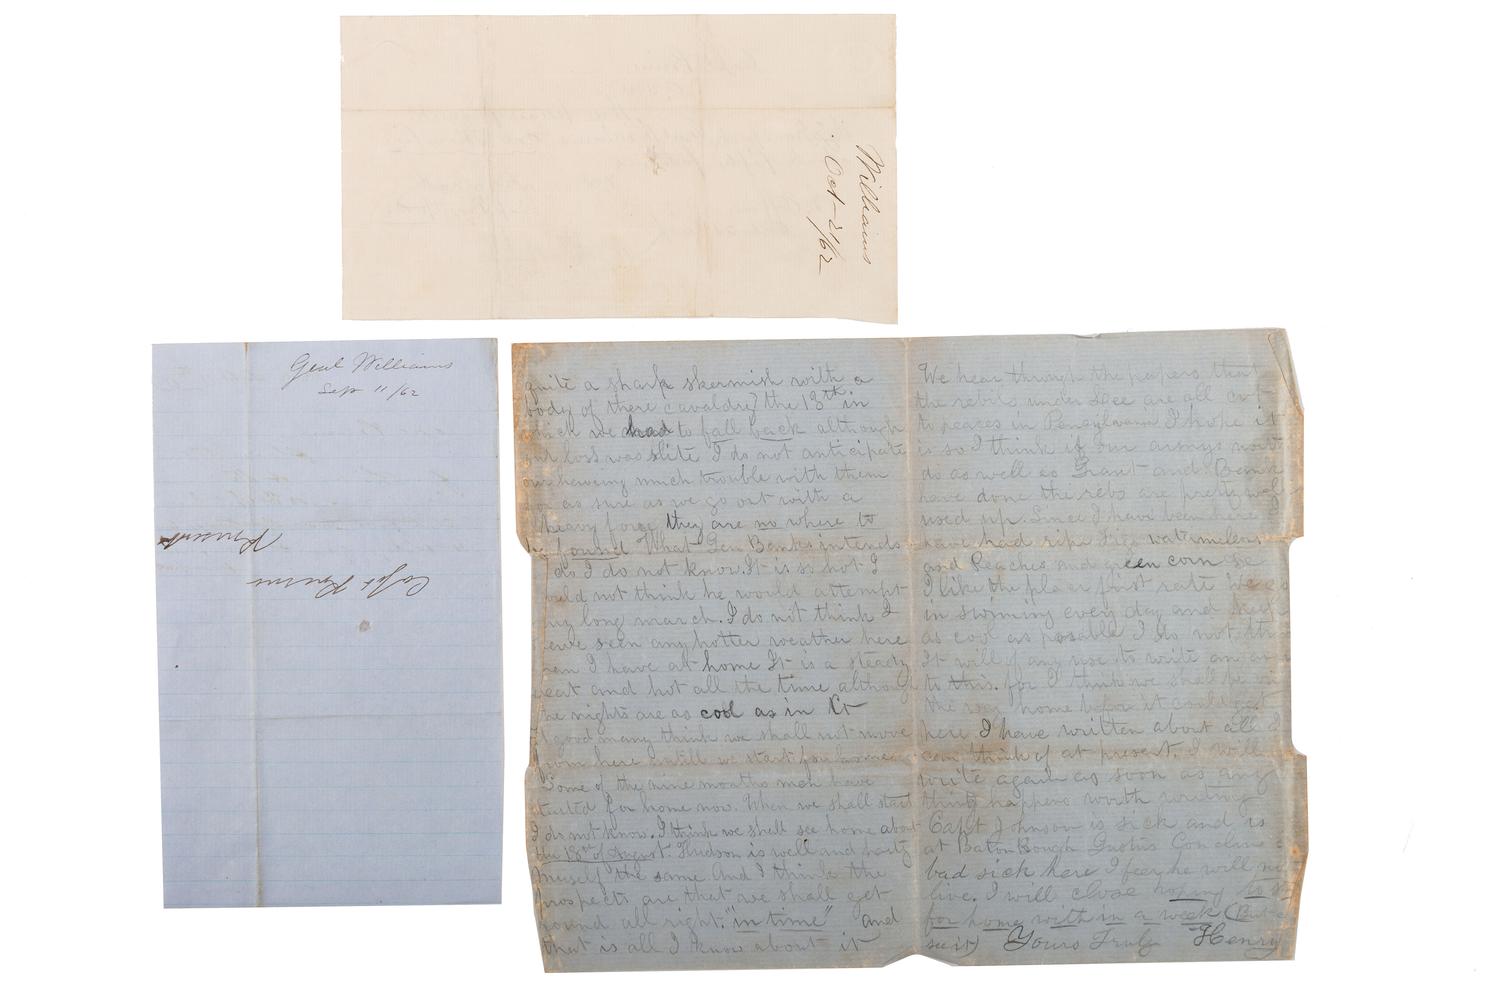 Williams
Oct-21/62
Genl Williams
Sep 11/62
Capt
Present
quite a sharp skermish with a
body of there cavaldry the 13th in
which we had to fall back although
our loss was slite I do not anticipate
our haveing much trouble with them
for as sure as we go out with a
heavy force they are no where to
be found What Gen Banks intends
do I do not know. It is so hot I
would not think he would attempt
any long march. I do not think I
have seen any hotter weather here
than I have at home It is a steady
heat and hot all the time although
the nights are as cool as in Ct
A good many think we shall not move
from here untill we start for home
Some of the nine months men have
started for home now. When we shall start
I do not know. I think we shall see home about
the 18th of August. Hudson is well and harty
myself the same And I think the
prospects are that we shall get
round all right. "in time" and
that is all I know about it
We hear through the papers that
the rebils under Lee are all cut
to peaces in Pensylvania I hope it
is so I think if our armys north
do as well as Grant and Banks
have done the rebs are pretty well
used up. Since I have been here
have had ripe Figs watermileons
and Peaches and green corn &c
I like the place first rate We go
in swiming every day and keep
as cool as posable I do not think
It will of any use to write an
to this. for I think we shall be on
the way home before it could get
here I have written about all I
can think of at present. I will
write again as soon as any
thing happens worth writing
Capt Johnson is sick and is
at Baton Rough Gustus Conclin is
bad sick here I fear he will not
live. I will close hoping to start
for home with in a week (But
see it) Yours Truly Henry